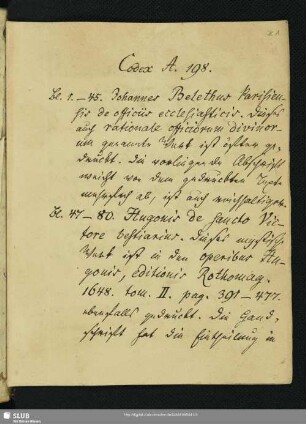 Codex A. 198.
Bl. 1.–45. Johannes Belethus Parisien-
sis de officiis ecclesiasticis. Dieses
auch rationale officiorum divinor-
um genannte Werk ist öfters ge-
druckt. Die vorliegende Abschrift
weicht von dem gedruckten Texte
ab, ist auch reichhaltiger.
Bl. 47–80. Hugonis de sancto Vic-
tore bestiarius. Dieses mystische
Werk ist in den operibus Hu-
gonis, editionis Rothomag.
1648. tom. II. pag. 391–477.
ebenfalls gedruckt. Die Hand-
schrift hat die Eintheilung in
SLUB